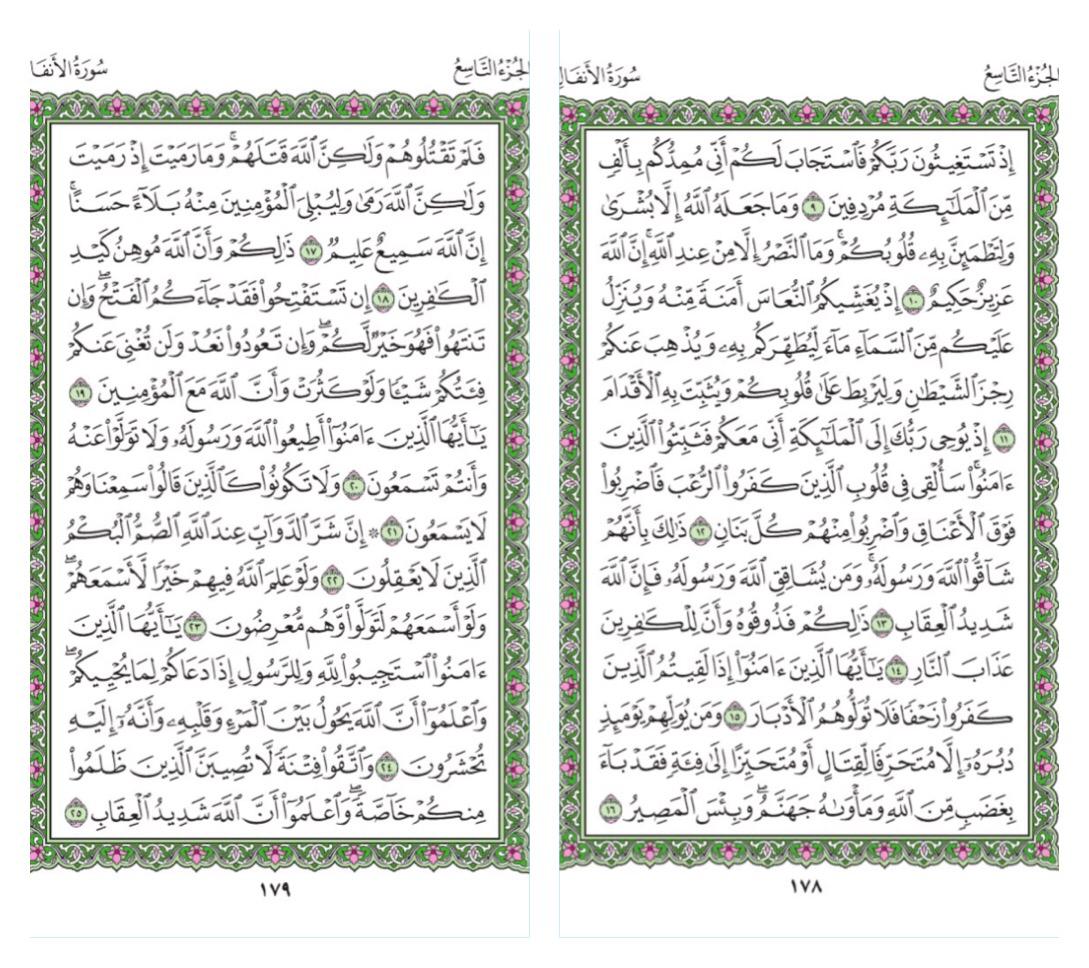 الجُزْءُ التَّاسِعُ
سُورَةُ الأَنفَال
إِذۡ تَسۡتَغِيثُونَ رَبَّكُمۡ فَٱسۡتَجَابَ لَكُمۡ أَنِّي مُمِدُّكُم بِأَلۡفٖ
مِّنَ ٱلۡمَلَٰٓئِكَةِ مُرۡدِفِينَ ٩ وَمَا جَعَلَهُ ٱللَّهُ إِلَّا بُشۡرَىٰ
وَلِتَطۡمَئِنَّ بِهِۦ قُلُوبُكُمۡۚ وَمَا ٱلنَّصۡرُ إِلَّا مِنۡ عِندِ ٱللَّهِۚ إِنَّ ٱللَّهَ
عَزِيزٌ حَكِيمٌ ١٠ إِذۡ يُغَشِّيكُمُ ٱلنُّعَاسَ أَمَنَةٗ مِّنۡهُ وَيُنَزِّلُ
عَلَيۡكُم مِّنَ ٱلسَّمَآءِ مَآءٗ لِّيُطَهِّرَكُم بِهِۦ وَيُذۡهِبَ عَنكُمۡ
رِجۡزَ ٱلشَّيۡطَٰنِ وَلِيَرۡبِطَ عَلَىٰ قُلُوبِكُمۡ وَيُثَبِّتَ بِهِ ٱلۡأَقۡدَامَ
١١ إِذۡ يُوحِي رَبُّكَ إِلَى ٱلۡمَلَٰٓئِكَةِ أَنِّي مَعَكُمۡ فَثَبِّتُواْ ٱلَّذِينَ
ءَامَنُواْۚ سَأُلۡقِي فِي قُلُوبِ ٱلَّذِينَ كَفَرُواْ ٱلرُّعۡبَ فَٱضۡرِبُواْ
فَوۡقَ ٱلۡأَعۡنَاقِ وَٱضۡرِبُواْ مِنۡهُمۡ كُلَّ بَنَانٖ ١٢ ذَٰلِكَ بِأَنَّهُمۡ
شَآقُّواْ ٱللَّهَ وَرَسُولَهُۥۚ وَمَن يُشَاقِقِ ٱللَّهَ وَرَسُولَهُۥ فَإِنَّ ٱللَّهَ
شَدِيدُ ٱلۡعِقَابِ ١٣ ذَٰلِكُمۡ فَذُوقُوهُ وَأَنَّ لِلۡكَٰفِرِينَ
عَذَابَ ٱلنَّارِ ١٤ يَٰٓأَيُّهَا ٱلَّذِينَ ءَامَنُوٓاْ إِذَا لَقِيتُمُ ٱلَّذِينَ
كَفَرُواْ زَحۡفٗا فَلَا تُوَلُّوهُمُ ٱلۡأَدۡبَارَ ١٥ وَمَن يُوَلِّهِمۡ يَوۡمَئِذٖ
دُبُرَهُۥٓ إِلَّا مُتَحَرِّفٗا لِّقِتَالٍ أَوۡ مُتَحَيِّزًا إِلَىٰ فِئَةٖ فَقَدۡ بَآءَ
بِغَضَبٖ مِّنَ ٱللَّهِ وَمَأۡوَىٰهُ جَهَنَّمُۖ وَبِئۡسَ ٱلۡمَصِيرُ ١٦
١٧٨
الجُزْءُ التَّاسِعُ
سُورَةُ الأَنفَا
فَلَمۡ تَقۡتُلُوهُمۡ وَلَٰكِنَّ ٱللَّهَ قَتَلَهُمۡۚ وَمَا رَمَيۡتَ إِذۡ رَمَيۡتَ
وَلَٰكِنَّ ٱللَّهَ رَمَىٰ وَلِيُبۡلِيَ ٱلۡمُؤۡمِنِينَ مِنۡهُ بَلَآءً حَسَنًاۚ
إِنَّ ٱللَّهَ سَمِيعٌ عَلِيمٞ ١٧ ذَٰلِكُمۡ وَأَنَّ ٱللَّهَ مُوهِنُ كَيۡدِ
ٱلۡكَٰفِرِينَ ١٨ إِن تَسۡتَفۡتِحُواْ فَقَدۡ جَآءَكُمُ ٱلۡفَتۡحُۖ وَإِن
تَنتَهُواْ فَهُوَ خَيۡرٞ لَّكُمۡۖ وَإِن تَعُودُواْ نَعُدۡ وَلَن تُغۡنِيَ عَنكُمۡ
فِئَتُكُمۡ شَيۡـٔٗا وَلَوۡ كَثُرَتۡ وَأَنَّ ٱللَّهَ مَعَ ٱلۡمُؤۡمِنِينَ ١٩
يَٰٓأَيُّهَا ٱلَّذِينَ ءَامَنُوٓاْ أَطِيعُواْ ٱللَّهَ وَرَسُولَهُۥ وَلَا تَوَلَّوۡاْ عَنۡهُ
وَأَنتُمۡ تَسۡمَعُونَ ٢٠ وَلَا تَكُونُواْ كَٱلَّذِينَ قَالُواْ سَمِعۡنَا وَهُمۡ
لَا يَسۡمَعُونَ ٢١ ۞ إِنَّ شَرَّ ٱلدَّوَآبِّ عِندَ ٱللَّهِ ٱلصُّمُّ ٱلۡبُكۡمُ
ٱلَّذِينَ لَا يَعۡقِلُونَ ٢٢ وَلَوۡ عَلِمَ ٱللَّهُ فِيهِمۡ خَيۡرٗا لَّأَسۡمَعَهُمۡۖ
وَلَوۡ أَسۡمَعَهُمۡ لَتَوَلَّواْ وَّهُم مُّعۡرِضُونَ ٢٣ يَٰٓأَيُّهَا ٱلَّذِينَ
ءَامَنُواْ ٱسۡتَجِيبُواْ لِلَّهِ وَلِلرَّسُولِ إِذَا دَعَاكُمۡ لِمَا يُحۡيِيكُمۡۖ
وَٱعۡلَمُوٓاْ أَنَّ ٱللَّهَ يَحُولُ بَيۡنَ ٱلۡمَرۡءِ وَقَلۡبِهِۦ وَأَنَّهُۥٓ إِلَيۡهِ
تُحۡشَرُونَ ٢٤ وَٱتَّقُواْ فِتۡنَةٗ لَّا تُصِيبَنَّ ٱلَّذِينَ ظَلَمُواْ
مِنكُمۡ خَآصَّةٗۖ وَٱعۡلَمُوٓاْ أَنَّ ٱللَّهَ شَدِيدُ ٱلۡعِقَابِ ٢٥
١٧٩